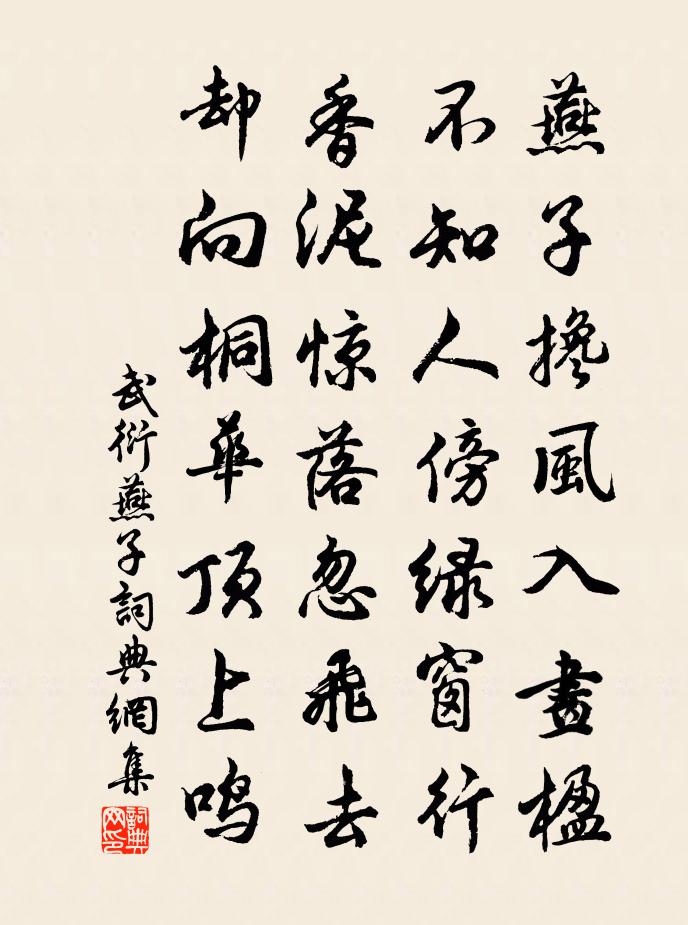 燕子搀風入畫楹
不知人傍绿窗行
香泥惊落忽飛去
却向桐華顶上鸣
武衍燕子詞典網集
詞典网印